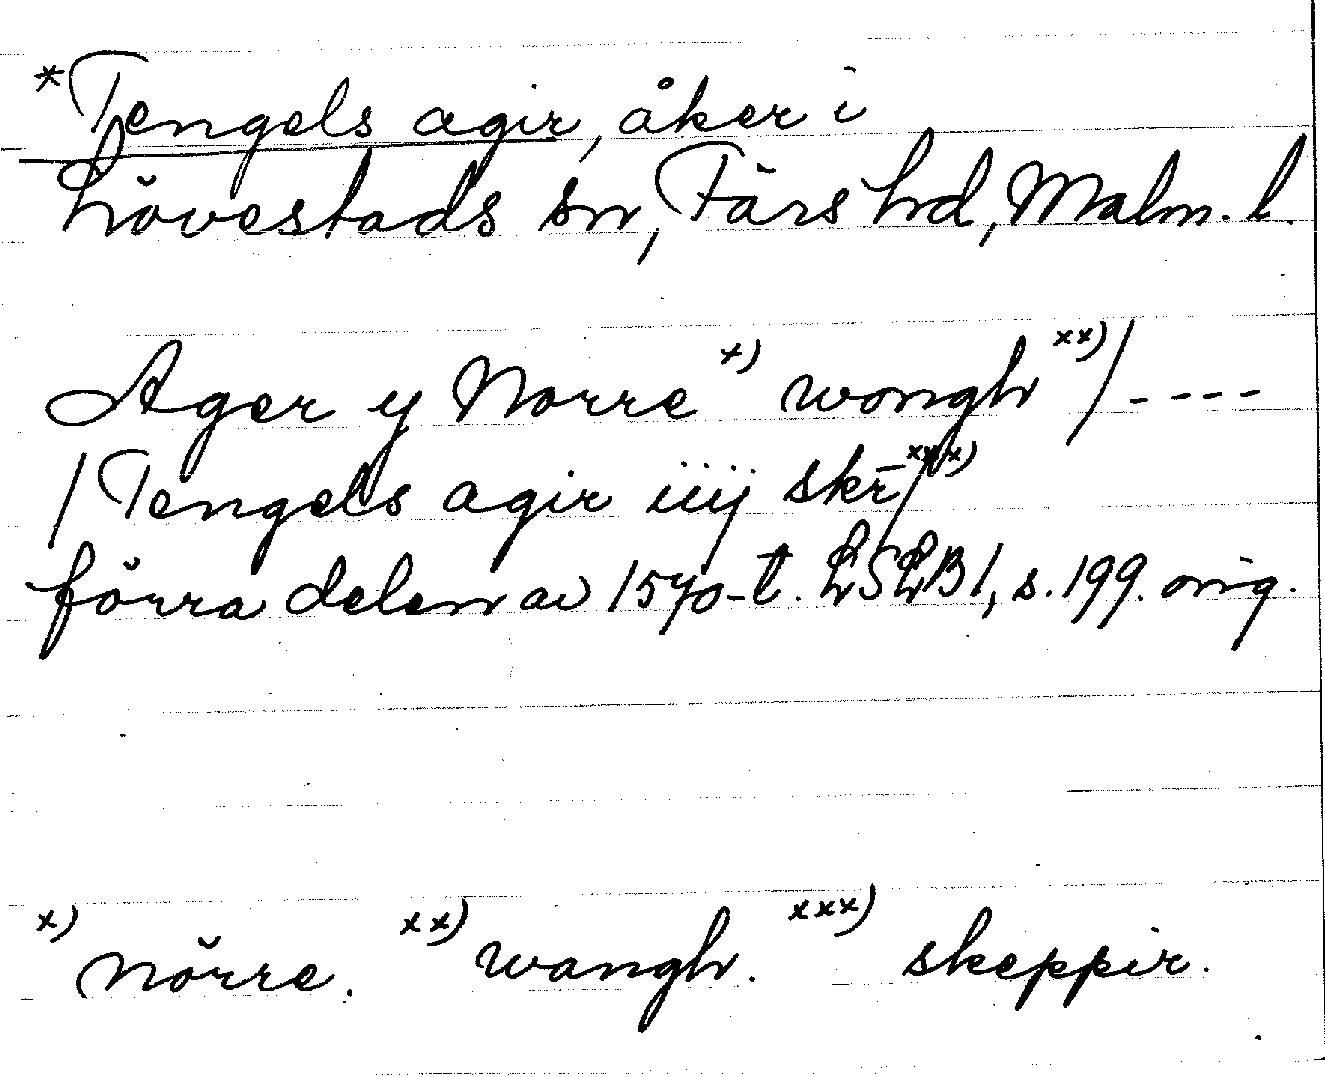 *Tengels agir, åker i
Lövestads sn, Färs hd, Malm. l.
Ager y Norre x) wongh xx) / ----
/ Tengels agir iiij skr̄ xxx) /
förra delen av 1570-t. LSLB1, s. 199. orig.
x) nörre. xx) wangh. xxx) skeppir.